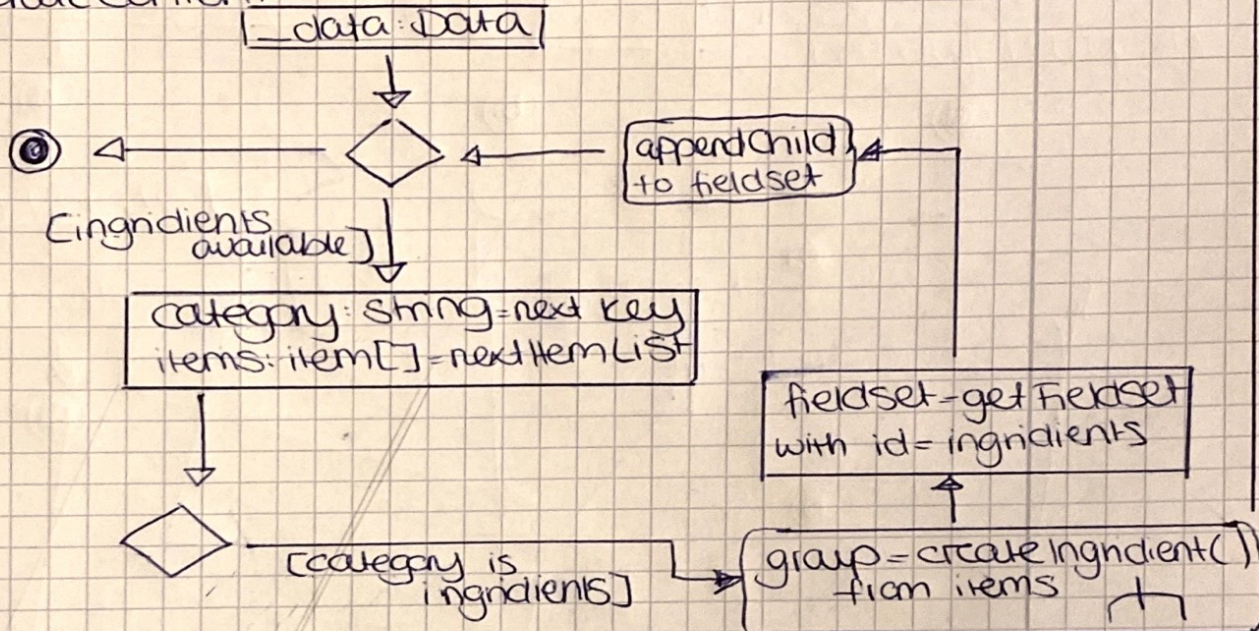 _data: Data
appendChild
to fieldset
[ingridients
available]
category: String=next key
items: item[]=nextItemList
fieldset=getFieldset
with id=ingridients
[category is
ingridients]
group=createIngridient()
from items